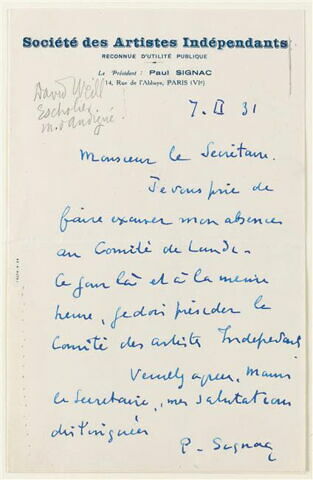 Société des Artistes Indépendants
RECONNUE D'UTILITÉ PUBLIQUE
Le Président : Paul SIGNAC
14, Rue de l'Abbaye, PARIS (VIe)
David Weill
Escholier
m. d'andigné
7. II 31
Monsieur le Secrétaire.
Je vous prie de
faire excuser mon absence
au Comité de Lundi.
Ce jour là et à la même
heure, je dois présider le
Comité des artistes Indépendants
Veuillez agréer, Monsieur
le Secrétaire, mes salutations
distinguées
P. Signac